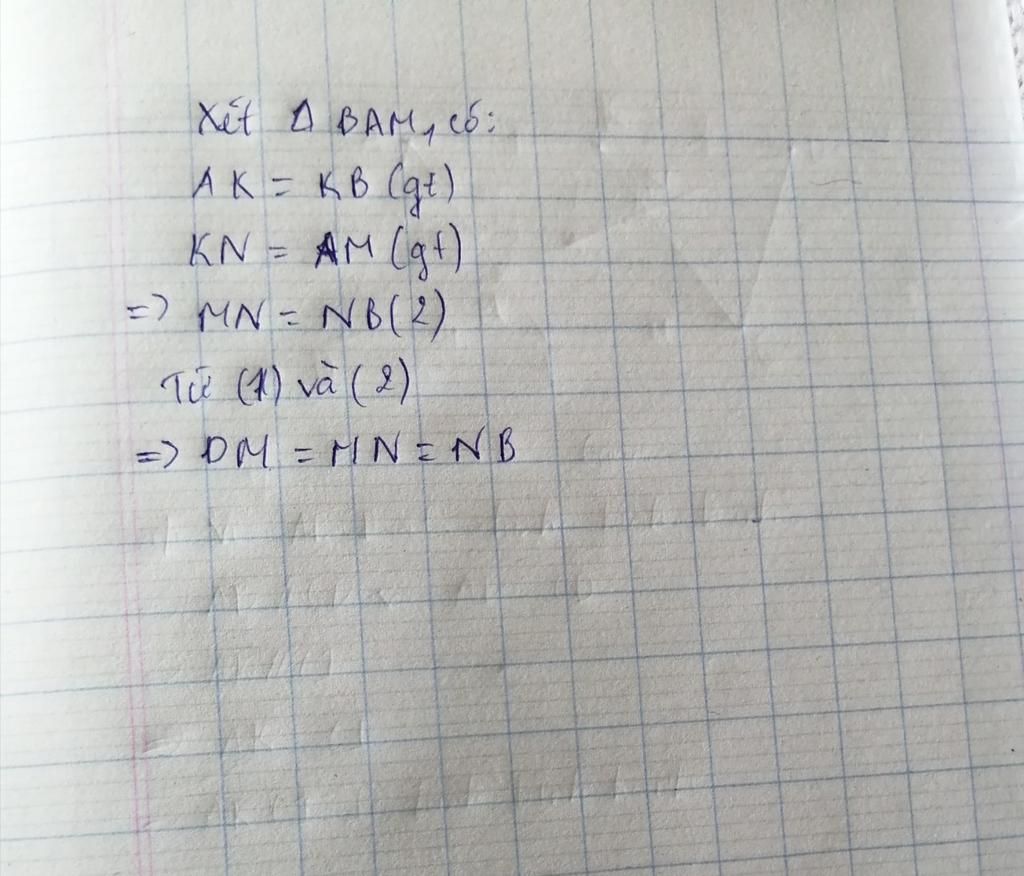 Xét Δ BAM, có:
AK = KB (gt)
KN = AM (gt)
=> MN = NB (2)
Từ (1) và (2)
=> DM = MN = NB